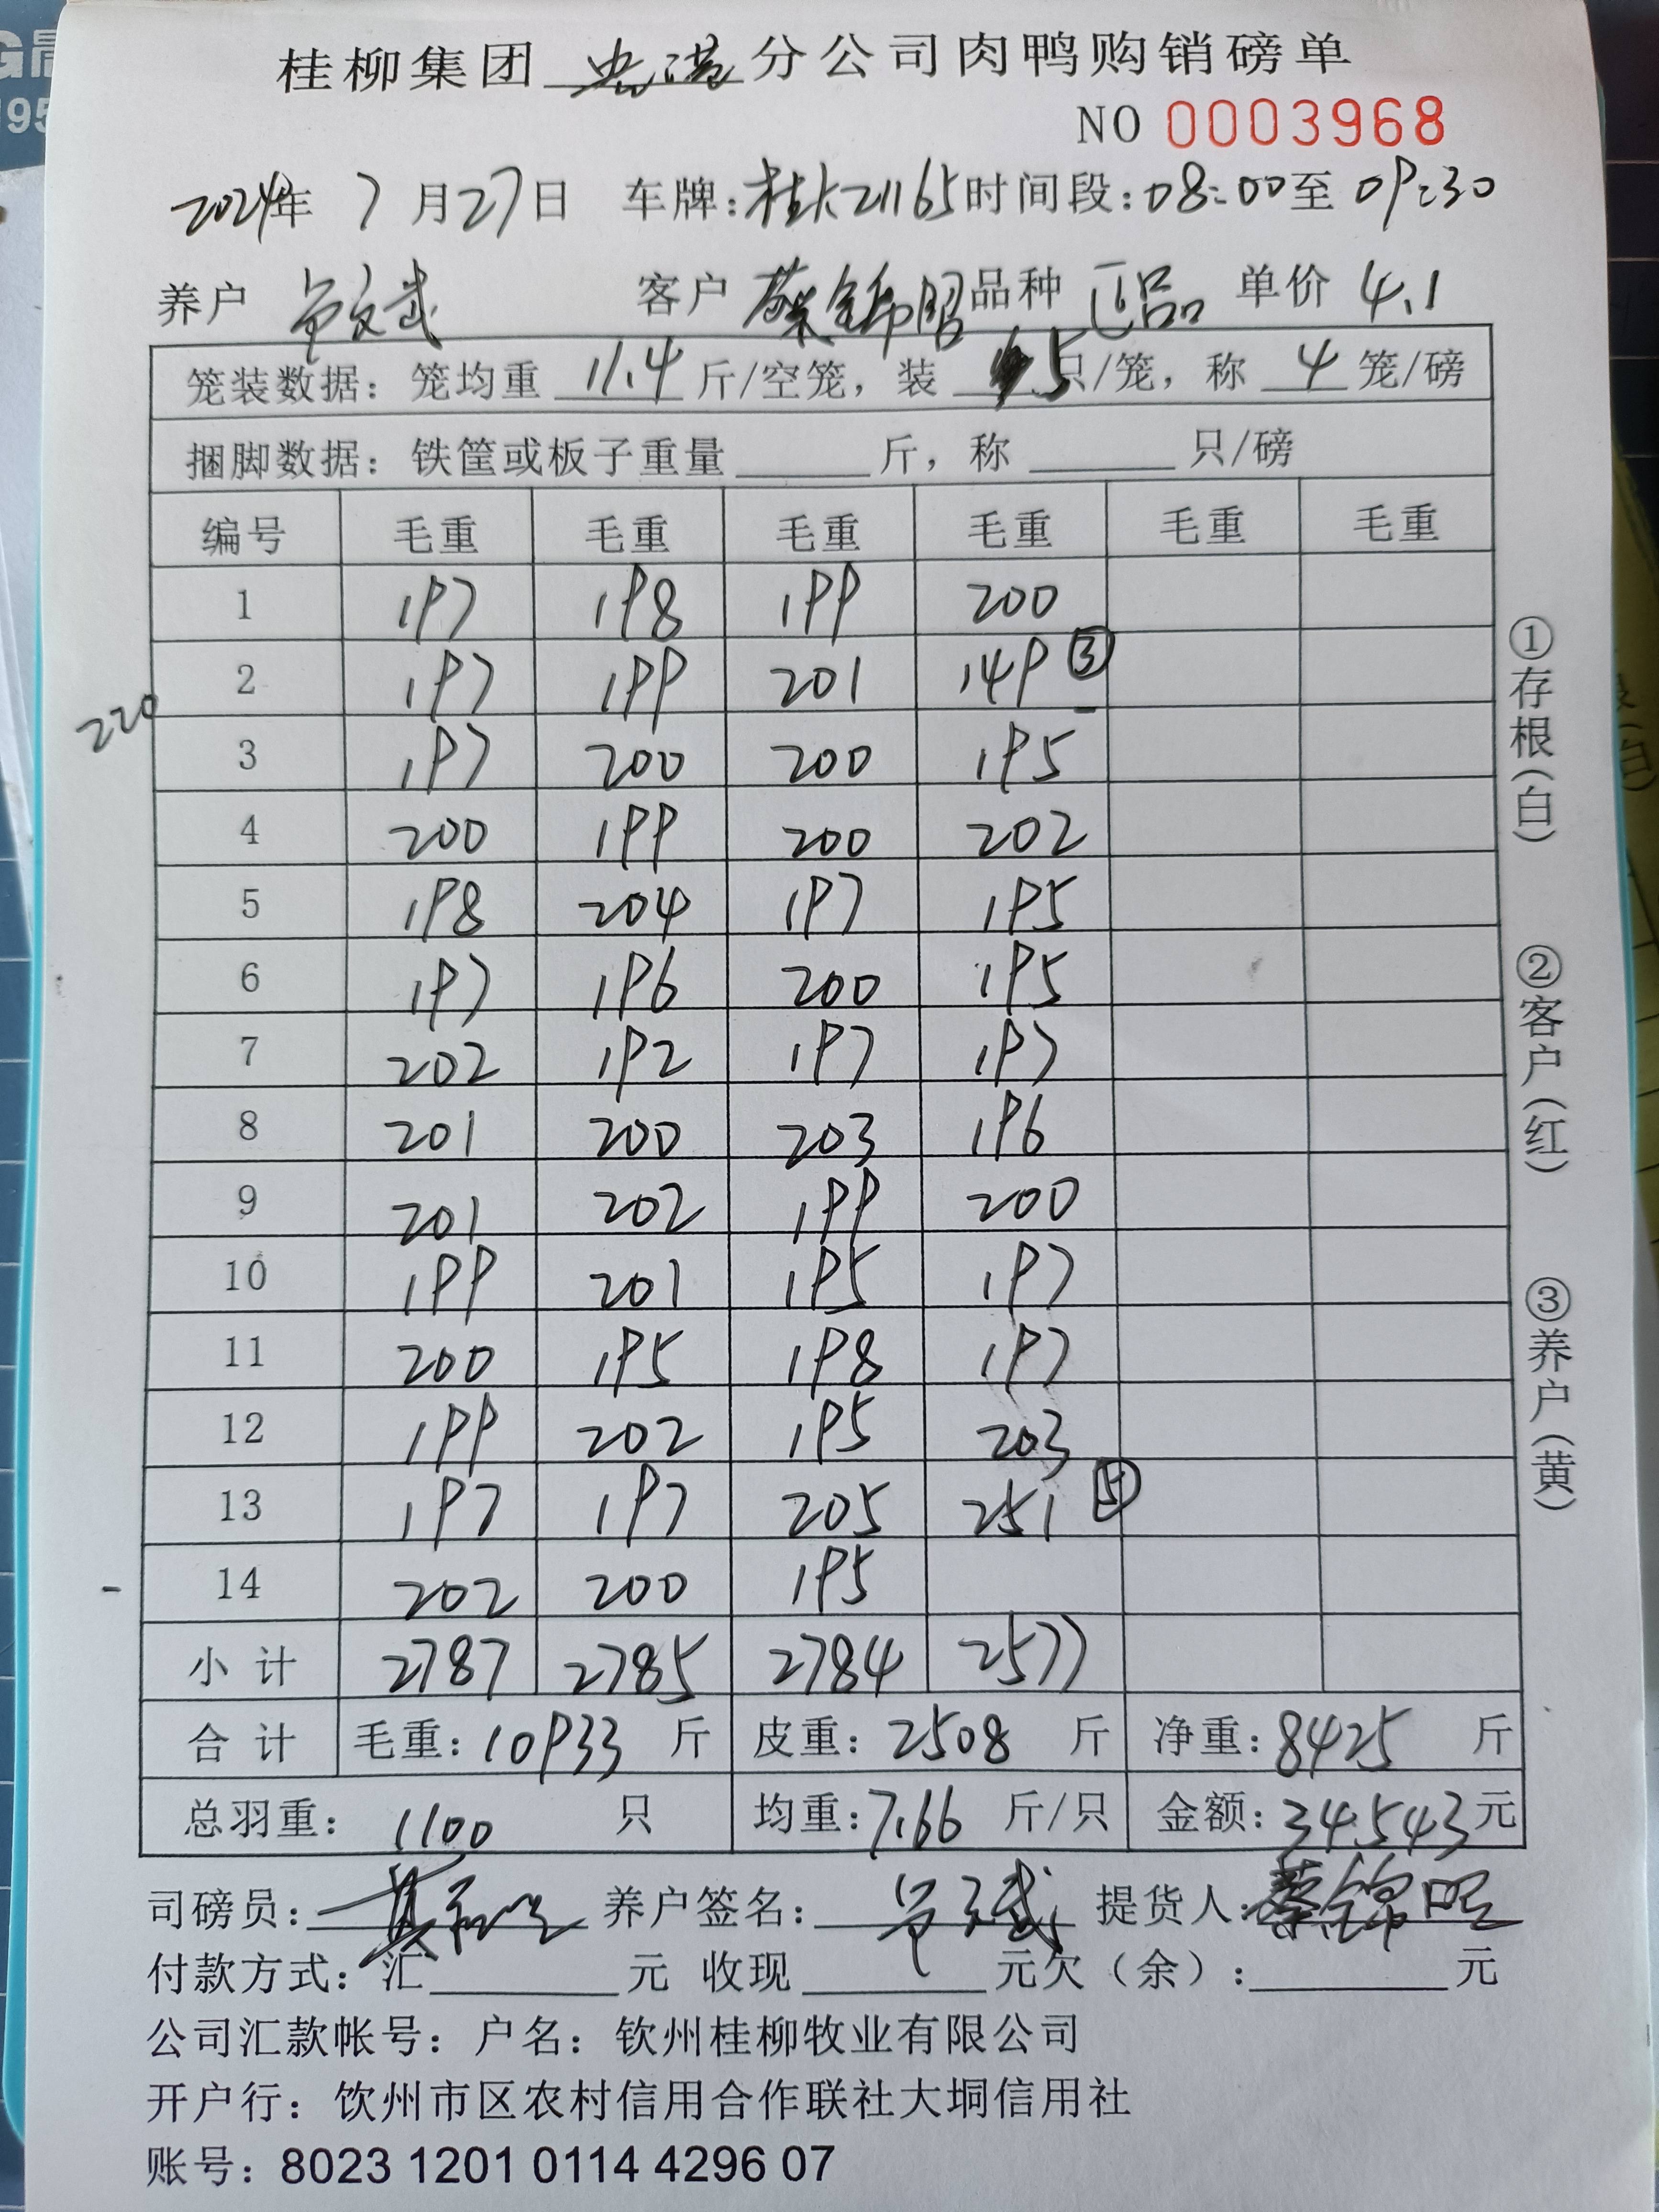 桂柳集团 分公司肉鸭购销磅单
NO 0003968
2024年 7 月27日 车牌:桂 21165时间段:08:00至 09:30
养户 文武 客户 蔡锦昭 品种 正品 单价 4.1
笼装数据: 笼均重 11.4 斤/空笼, 装 5 只/笼, 称 4 笼/磅
捆脚数据: 铁筐或板子重量______斤, 称______只/磅
编号 毛重 毛重 毛重 毛重 毛重 毛重
1 197 198 199 200
2 197 199 201 149 ③
220
3 197 200 200 195
4 200 199 200 202
5 198 204 197 195
6 197 196 200 195
7 202 192 197 197
8 201 200 203 196
9 201 202 199 200
10 199 201 195 197
11 200 195 198 197
12 199 202 195 203
13 197 197 205 251 ⑤
14 202 200 195
小计 2787 2785 2784 2577
合计 毛重: 10933 斤 皮重: 2508 斤 净重: 8425 斤
总羽重: 1100 只 均重: 7.66 斤/只 金额: 34543元
司磅员: 养户签名: 文武 提货人: 蔡锦昭
付款方式: 汇______元 收现______元欠(余):______元
公司汇款帐号: 户名: 钦州桂柳牧业有限公司
开户行: 钦州市区农村信用合作联社大垌信用社
账号: 8023 1201 0114 4296 07
①存根(白)
②客户(红)
③养户(黄)